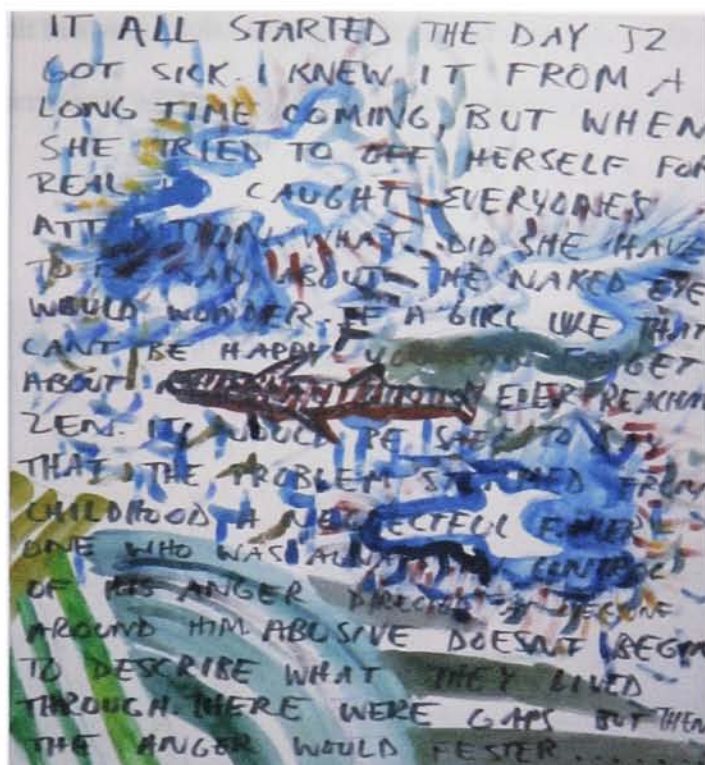 IT ALL STARTED THE DAY J2
GOT SICK. I KNEW IT FROM A
LONG TIME COMING, BUT WHEN
SHE TRIED TO OFF HERSELF FOR
REAL CAUGHT EVERYONE'S
WHAT DID SHE HAVE
TO SAD ABOUT THE NAKED EYE
WOULD WONDER. IF A GIRL LIKE THAT
CANT BE HAPPY YOU CAN FORGET
ABOUT EVER REACHIN
ZEN. IT WOULD BE SAFE TO SAY
THAT THE PROBLEM STEMMED FROM
CHILDHOOD A NEGLECTFUL FATHER
ONE WHO WAS ALWAYS IN CONTROL
OF HIS ANGER DIRECTED AT EVERYONE
AROUND HIM. ABUSIVE DOESNT BEGIN
TO DESCRIBE WHAT THEY LIVED
THROUGH. THERE WERE GAPS BUT THEN
THE ANGER WOULD FESTER........